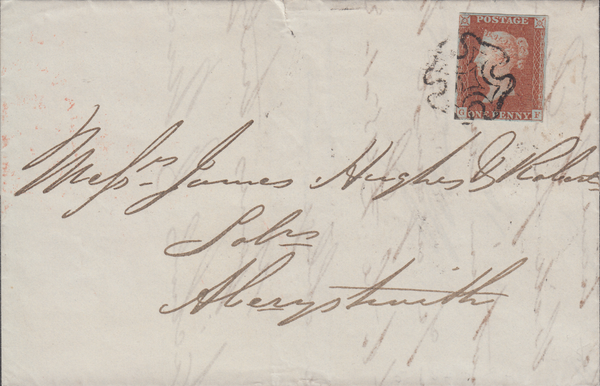 POSTAGE
G ONE PENNY F
Messrs James Hughes & Roberts
Solrs
Aberystwith